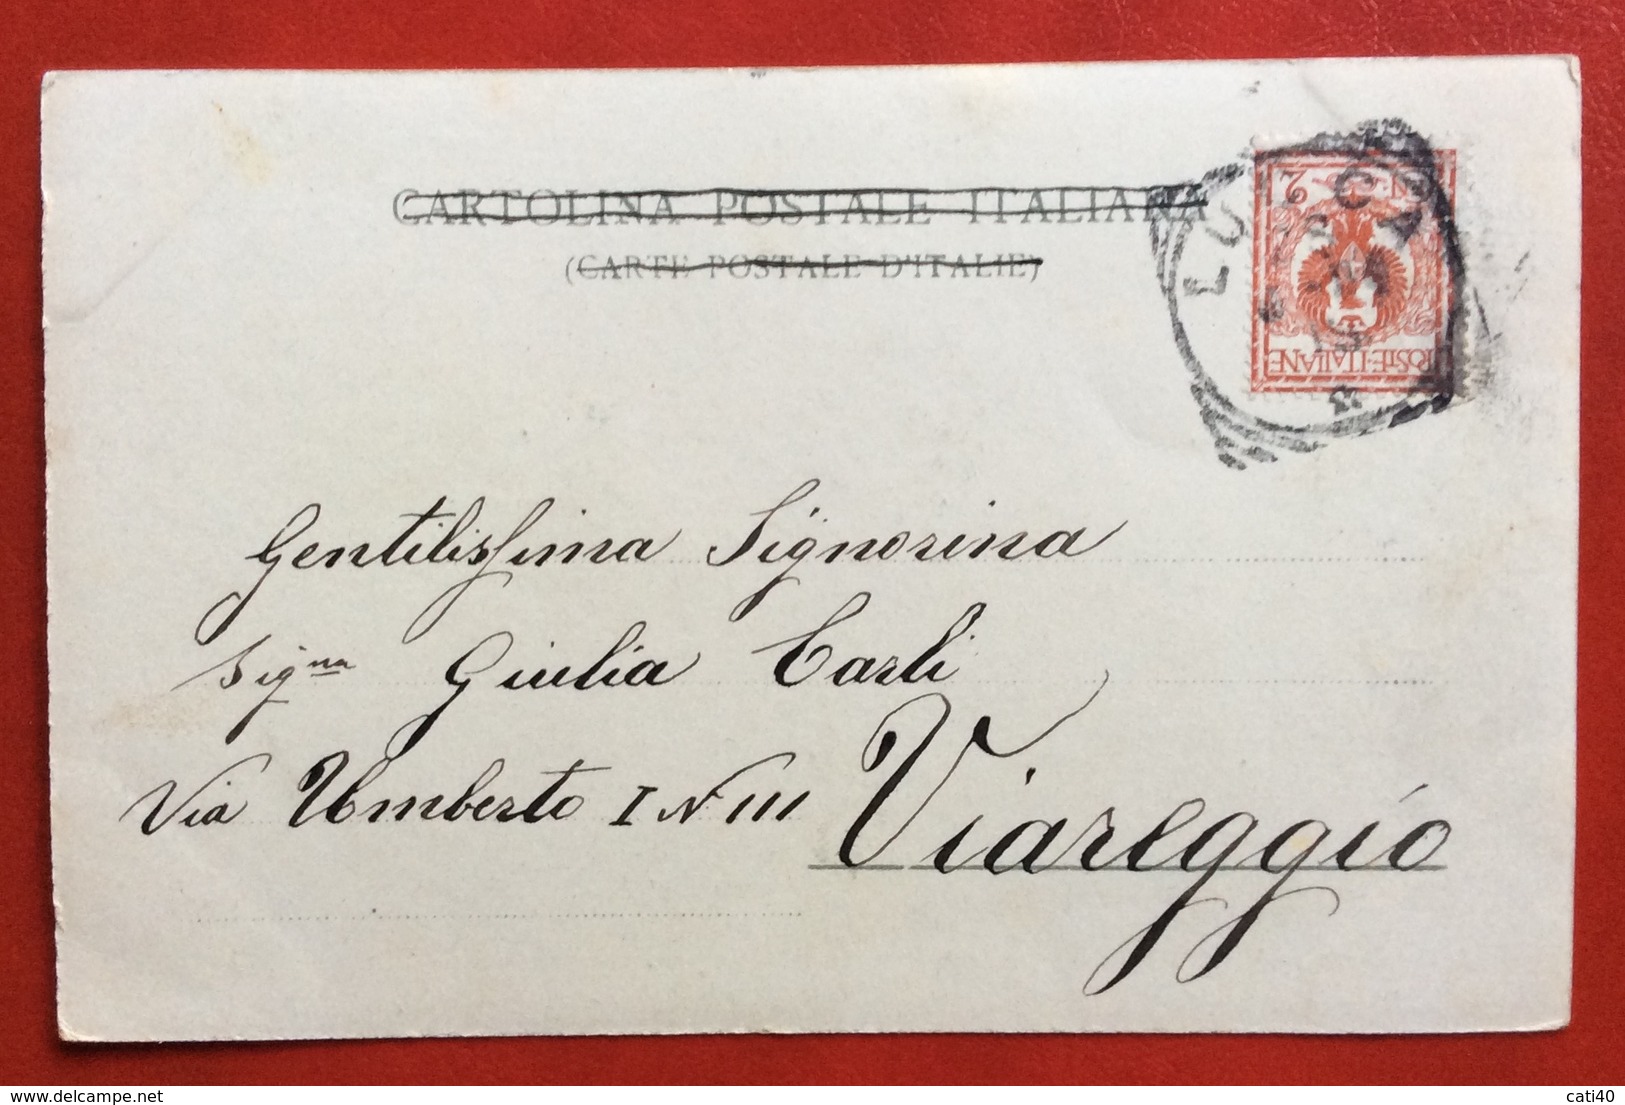 CARTOLINA POSTALE ITALIANA
(CARTE POSTALE D'ITALIE)
LUCCA
2
POSTE·ITALIANE
Gentilissima Signorina
Signa Giulia Carli
Via Umberto I N 111
Viareggio
cati40